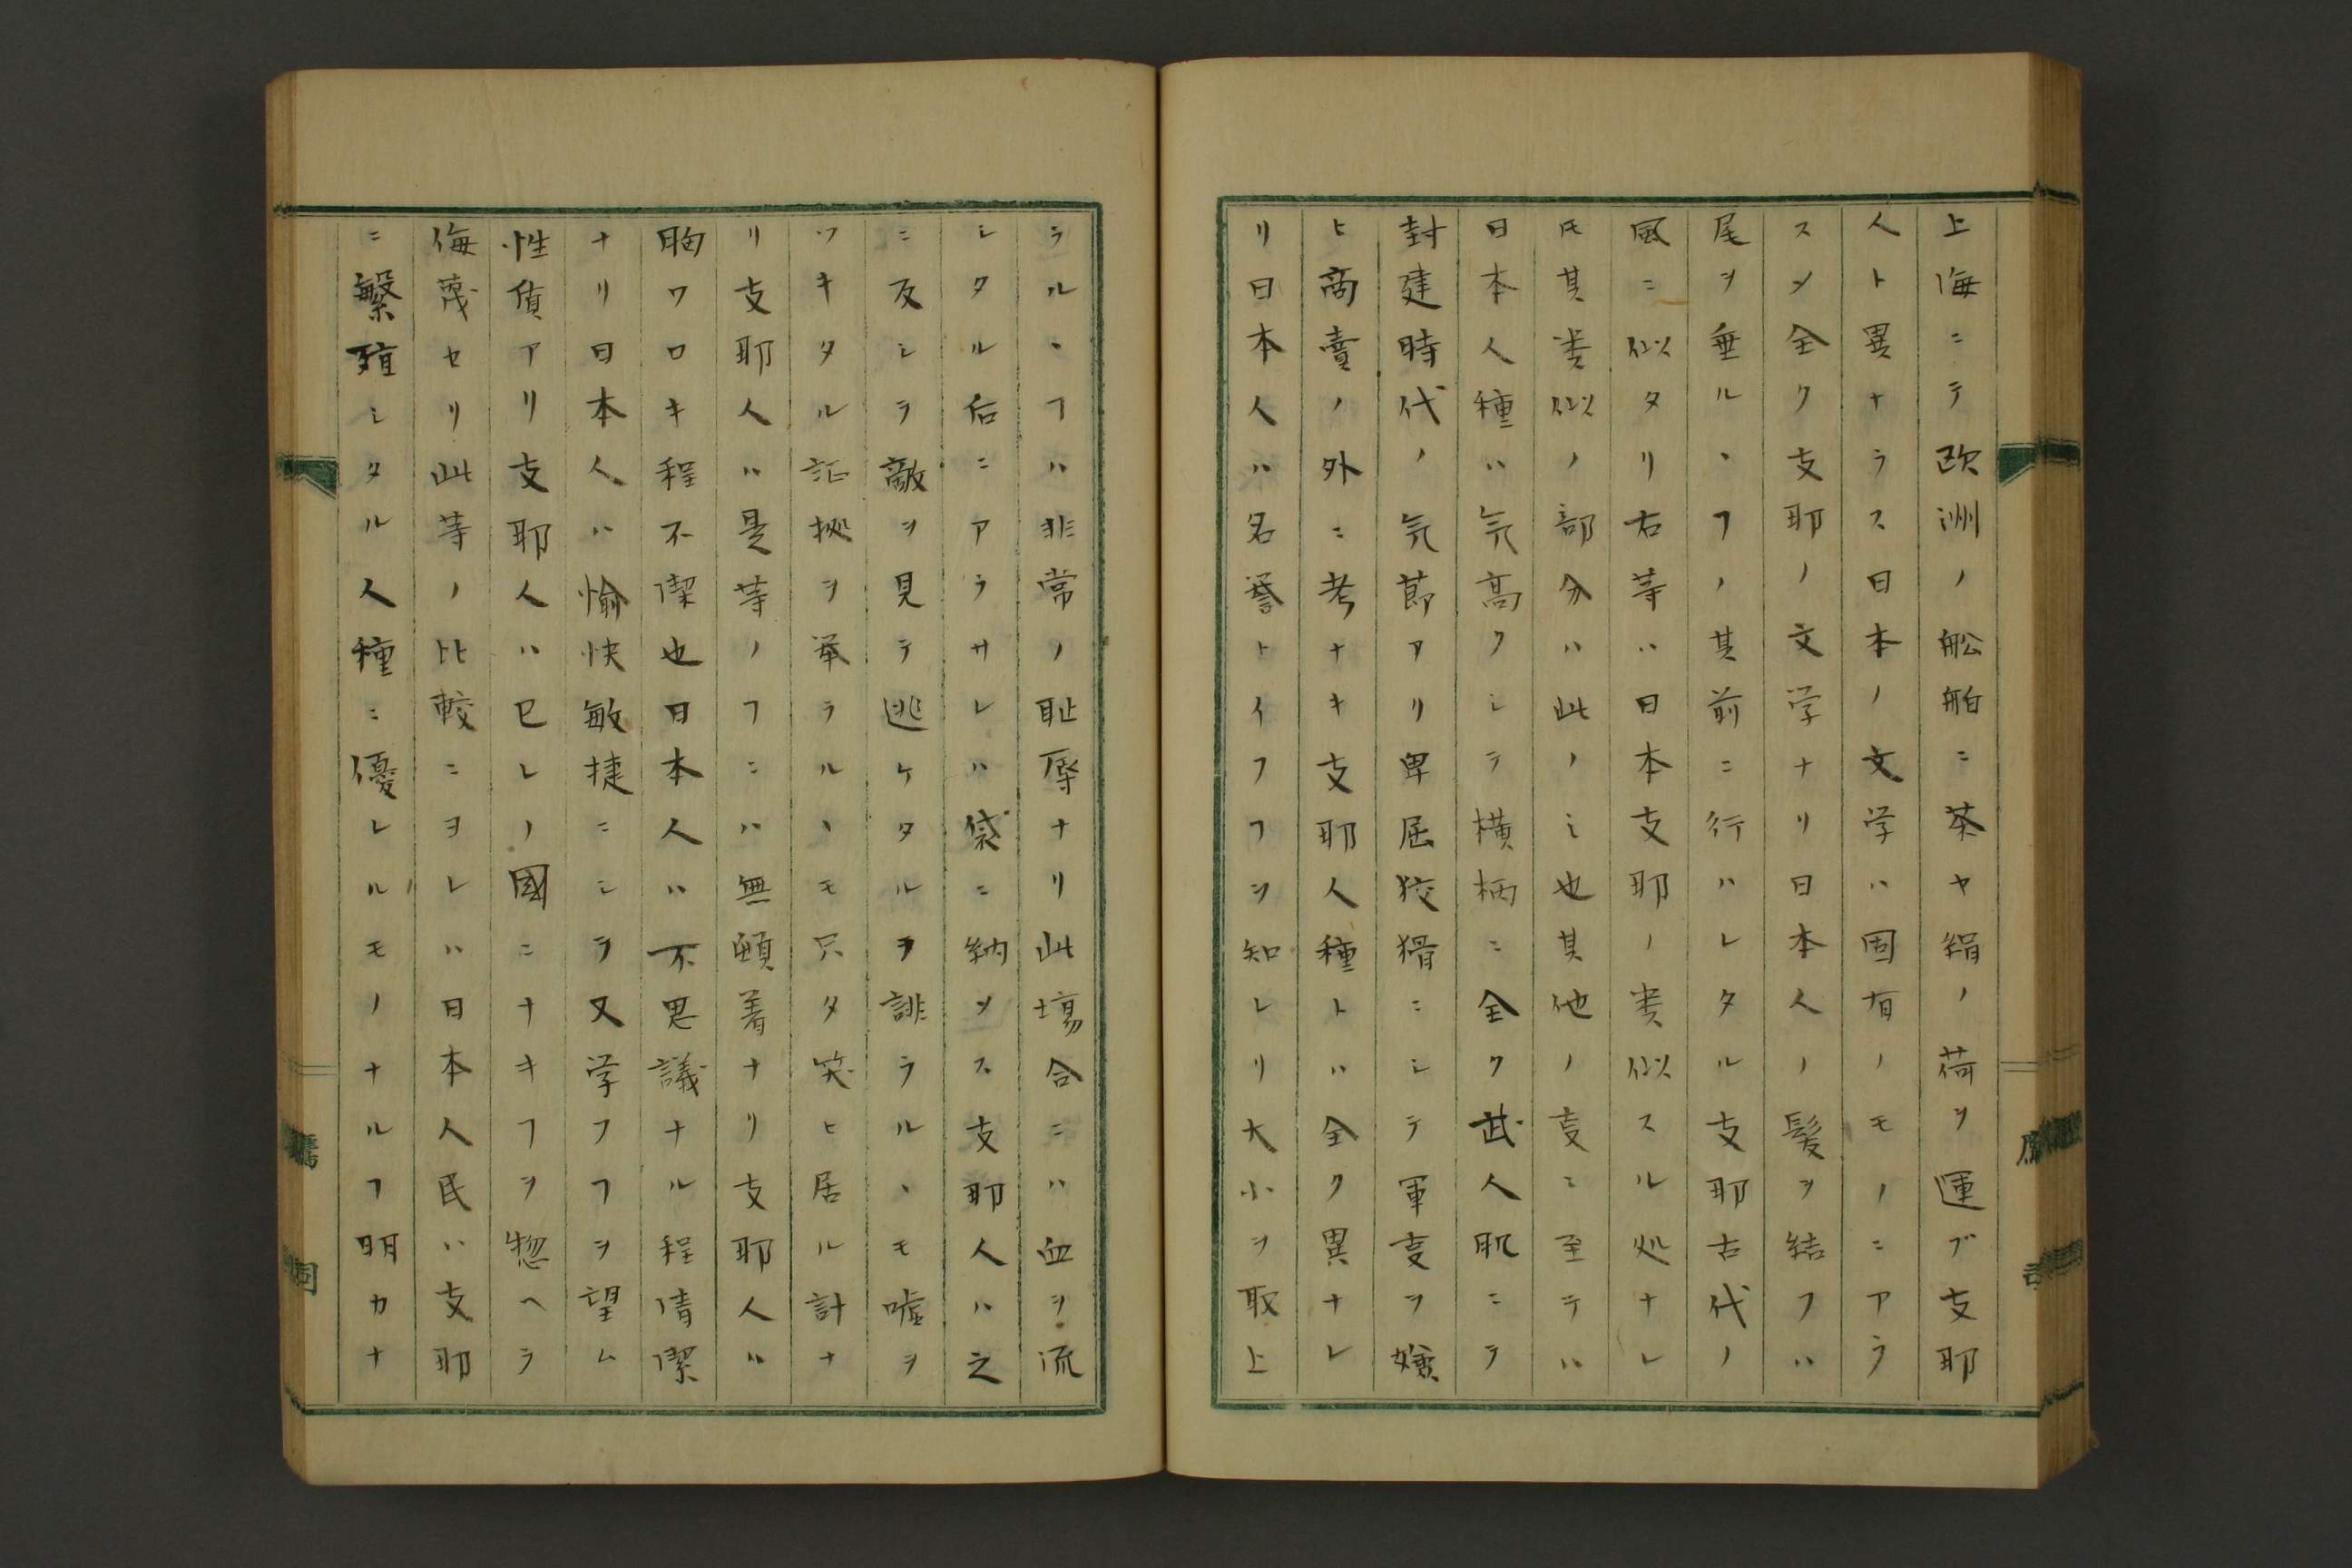 上海ニテ欧洲ノ舩舶ニ茶ヤ絹ノ荷ヲ運ブ支耶
人ト異ナラス日本ノ文学ハ固有ノモノニアラ
スメ全ク支耶ノ文学ナリ日本人ノ髪ヲ結フハ
尾ヲ垂ルヽヿノ其前ニ行ハレタル支耶古代ノ
風ニ似タリ右等ハ日本支耶ノ类似スル処ナレ
𪜈其类似ノ部分ハ此ノミ也其他ノ㕝ニ至テハ
日本人種ハ気高クシテ横柄ニ全ク武人肌ニテ
封建時代ノ気節アリ卑屈狡猾ニシテ軍㕝ヲ嫌
ヒ商賣ノ外ニ考ナキ支耶人種トハ全ク異ナレ
リ日本人ハ名誉トイフヿヲ知レリ大小ヲ取上
ラルヽヿハ非常ノ耻辱ナリ此塲合ニハ血ヲ流
シタル后ニアラサレハ袋ニ納メス支耶人ハ之
ニ反シテ敵ヲ見テ逃ケタルヲ誹ラルヽモ嘘ヲ
ツキタル証拠ヲ举ラルヽモ只タ笑ヒ居ル計ナ
リ支耶人ハ是等ノヿニハ無頓着ナリ支耶人ハ
胸ワロキ程不潔也日本人ハ不思議ナル程清潔
ナリ日本人ハ愉快敏捷ニシテ又学フヿヲ望ム
性質アリ支耶人ハ已レノ國ニナキヿヲ惣ヘテ
侮蔑セリ此等ノ比較ニヨレハ日本人民ハ支耶
ニ繁殖シタル人種ニ優レルモノナルヿ明カナ